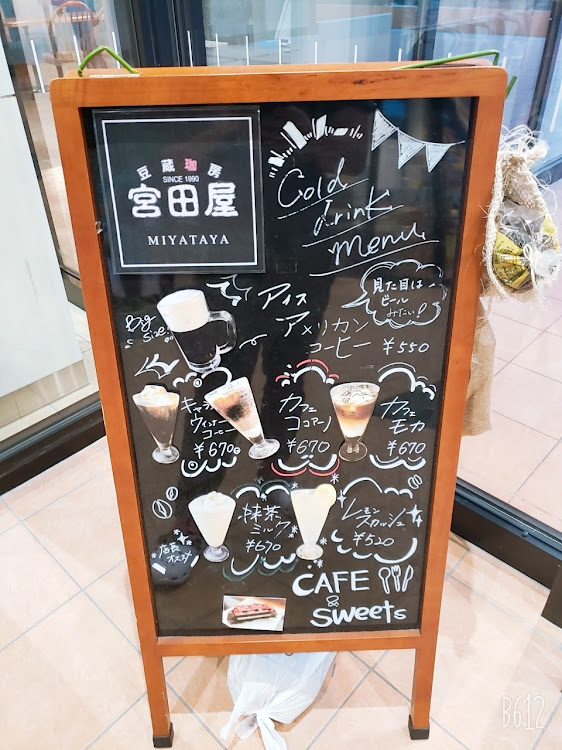 豆蔵珈房
SINCE 1990
宮田屋
MIYATAYA
Cold
drink
menu
Big
Size!
アイス
アメリカン
コーヒー ¥550
見た目は
ビール
みたい!
ウィンナー
コーヒー
¥670
カフェ
ココアーノ
¥670
カフェ
モカ
¥670
抹茶
ミルク
¥670
レモン
スカッシュ
¥520
店長
オススメ
CAFE
&
Sweets
B612